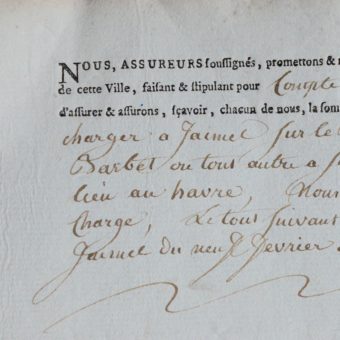 NOUS, ASSUREURS souſſignés, promettons &
de cette Ville, faiſant & ſtipulant pour Compte
d'aſſurer & aſſurons, ſçavoir, chacun de nous, la ſom
charger a Jacmel Sur le
Barbet ou tous autre a
lieu au havre, Nous
Charge, Le tout Suivant
Jacmel du neuf fevrier